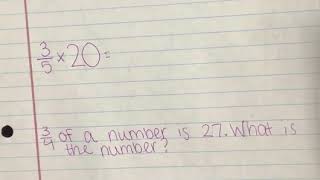 3/5 × 20 =
3/4 of a number is 27. What is
the number?